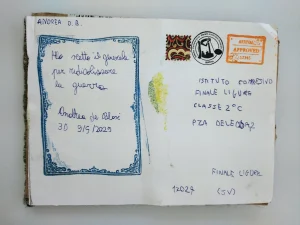 ANDREA D. A.
Ho scelto il generale
per ridicolizzare
la guerra
Andrea
30 3/5/2029
APPROVED
ISTITUTO COMPRENSIVO
FINALE LIGURE
CLASSE 2° C
PZA
FINALE LIGURE
17024 (SV)